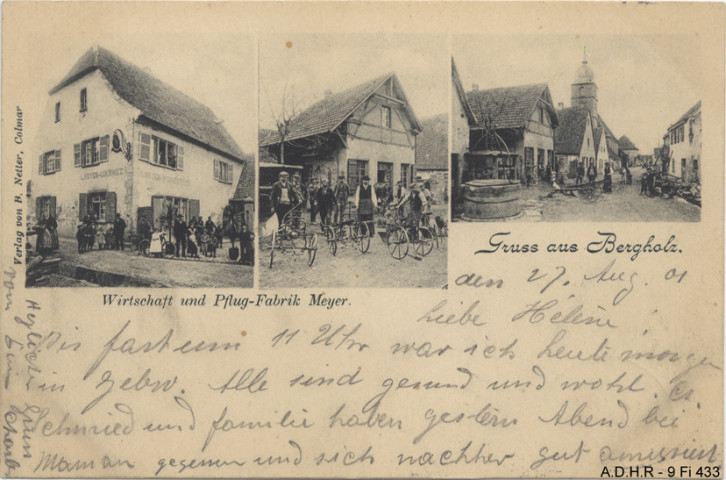 Verlag von B. Netter, Colmar
Gruss aus Bergholz.
Wirtschaft und Pflug-Fabrik Meyer.
den 27. Aug. 01
liebe Hélène
Bis fast um 11 Uhr war ich heute morgen
in Gebw. Alle sind gesund und wohl. Ch.
Schmied und familie haben gestern Abend bei
Maman gegessen und sich nachher gut amusiert
Herzliche
von
A.D.H.R - 9 Fi 433